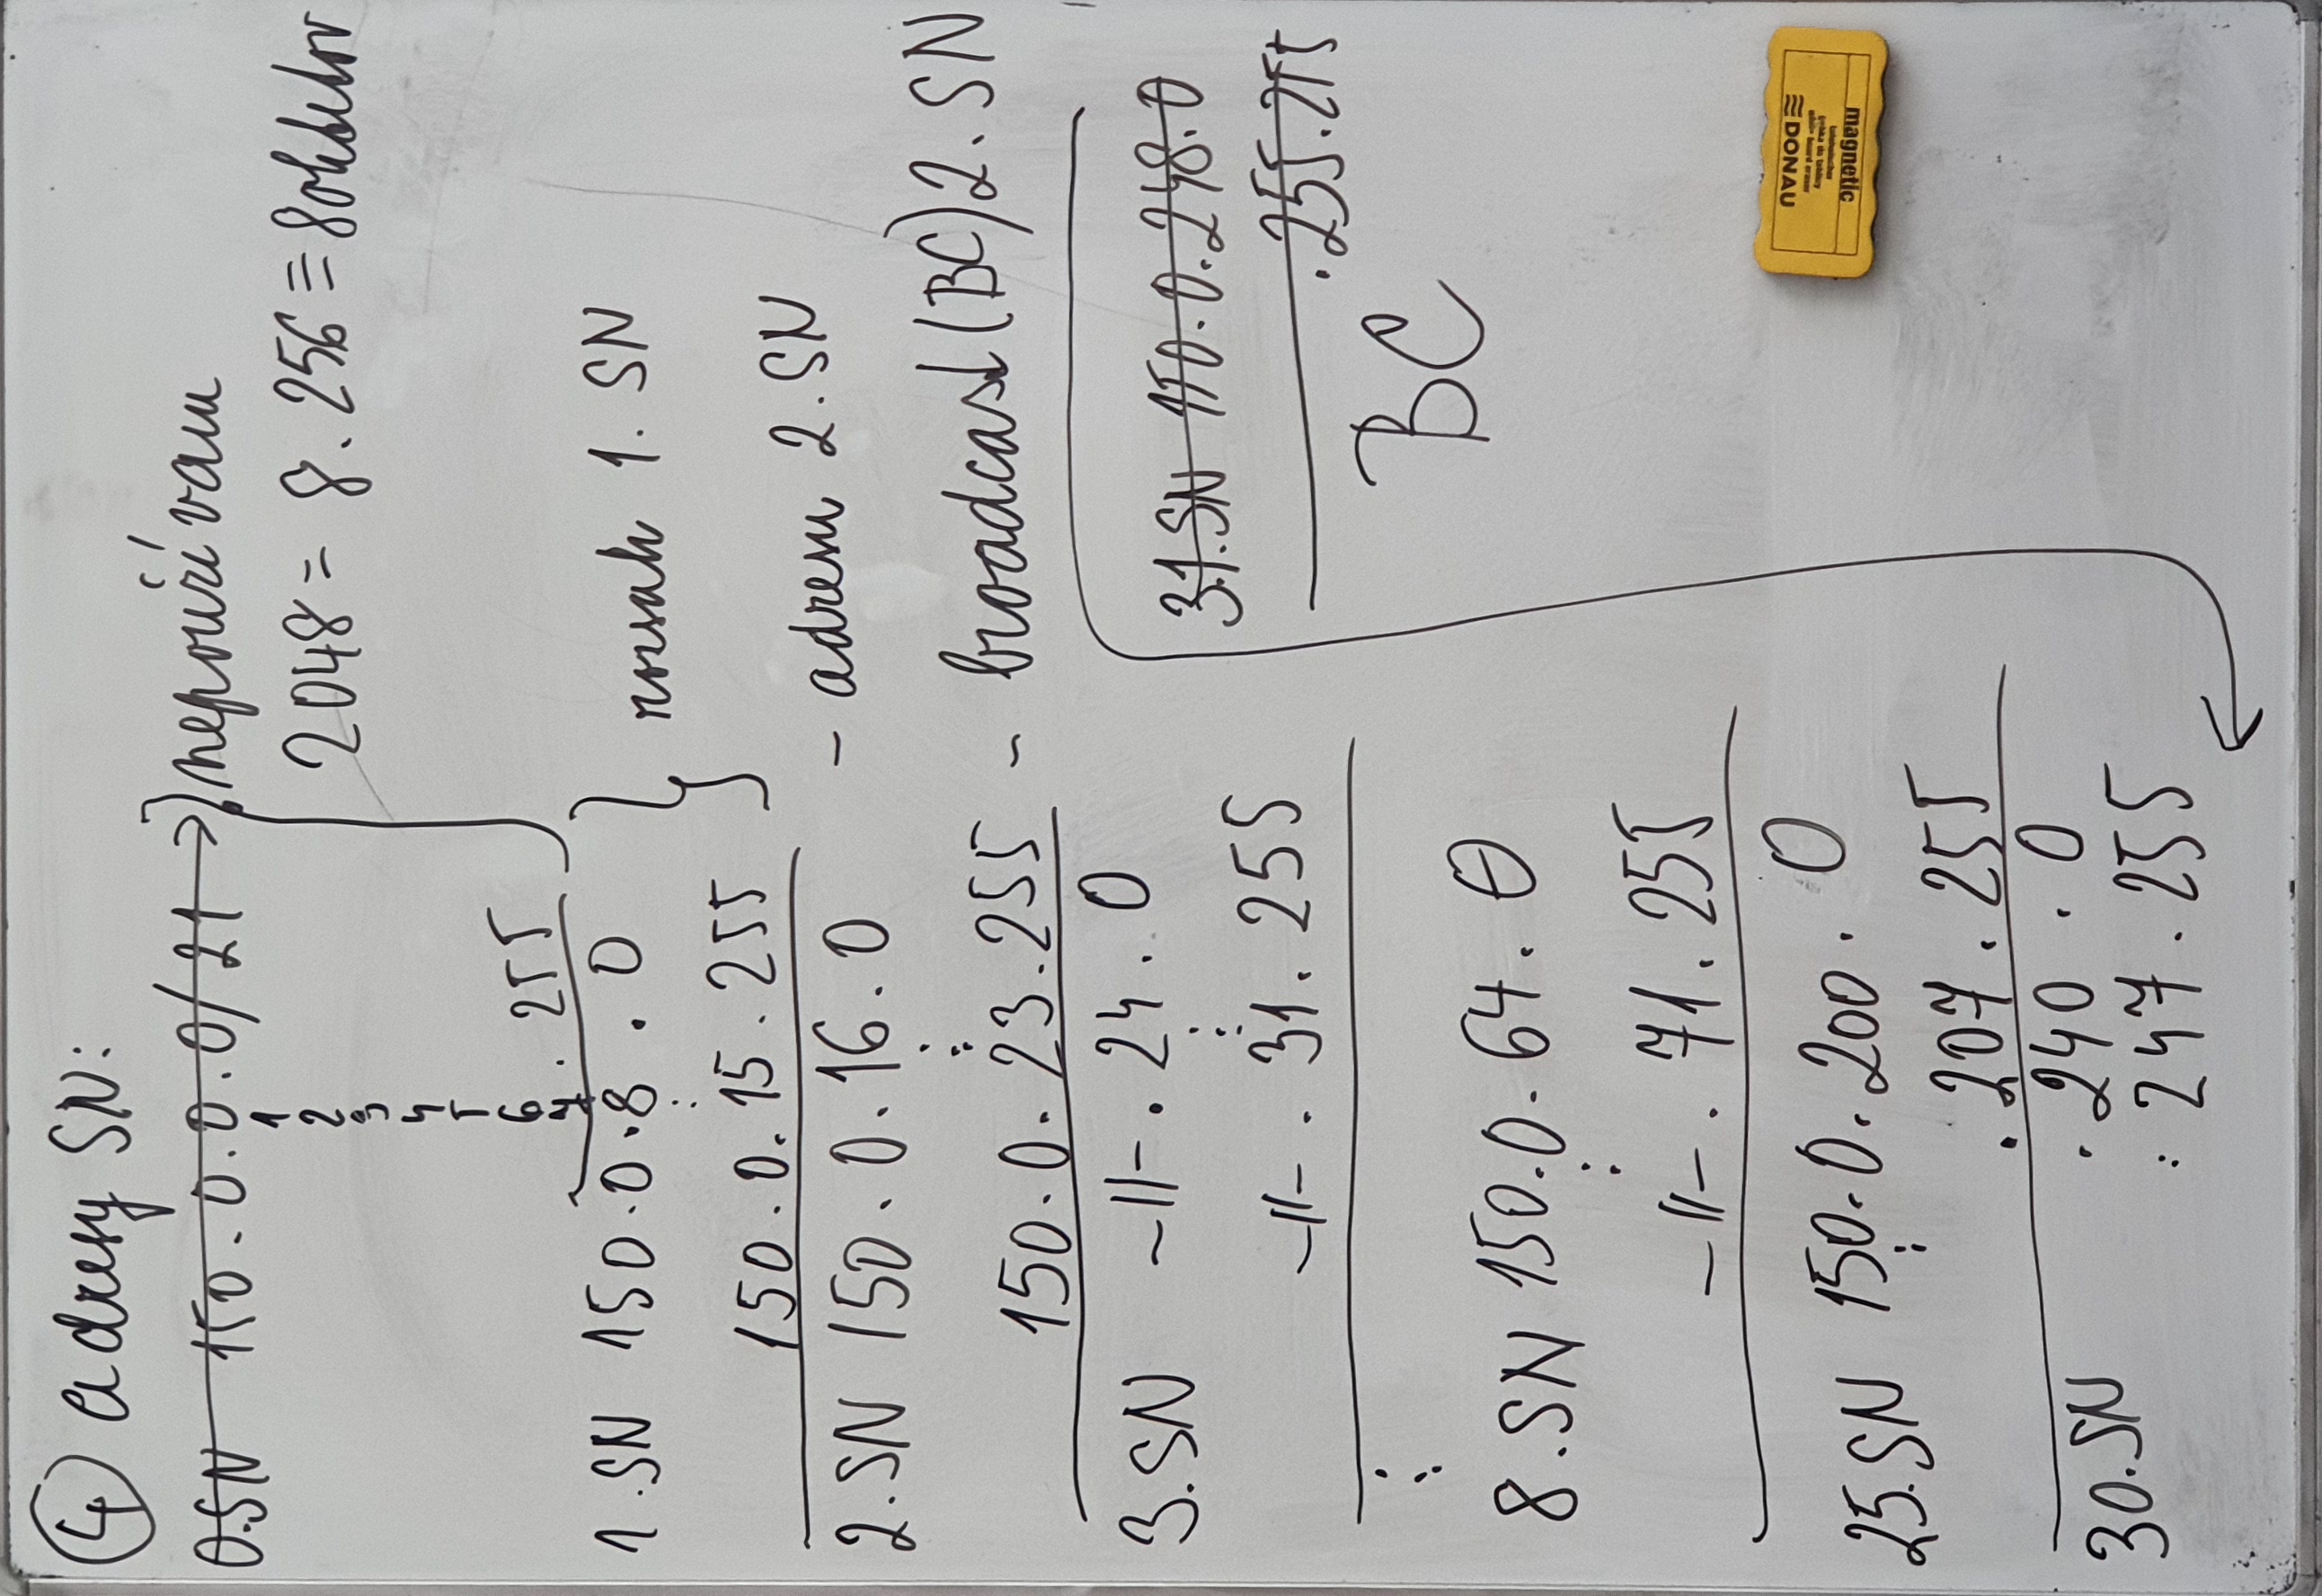 ④ adresy SN:
0.SN 150.0.0.0/21 nepoužívam
1
2
3
4
5
6
7.255
2048 = 8.256 ≡ 8 oktetov
1.SN 150.0.8.0
rozsah 1. SN
:
150.0.15.255
2.SN 150.0.16.0 - adresa 2.SN
:
150.0.23.255 - broadcast (BC) 2. SN
3.SN -||-.24.0
:
-||-.31.255
:
8.SN 150.0.64.0
:
-||-.71.255
25.SN 150.0.200.0
:
.207.255
30.SN .240.0
:247.255
31.SN 150.0.248.0
.255.255
BC
DONAU
magnetic